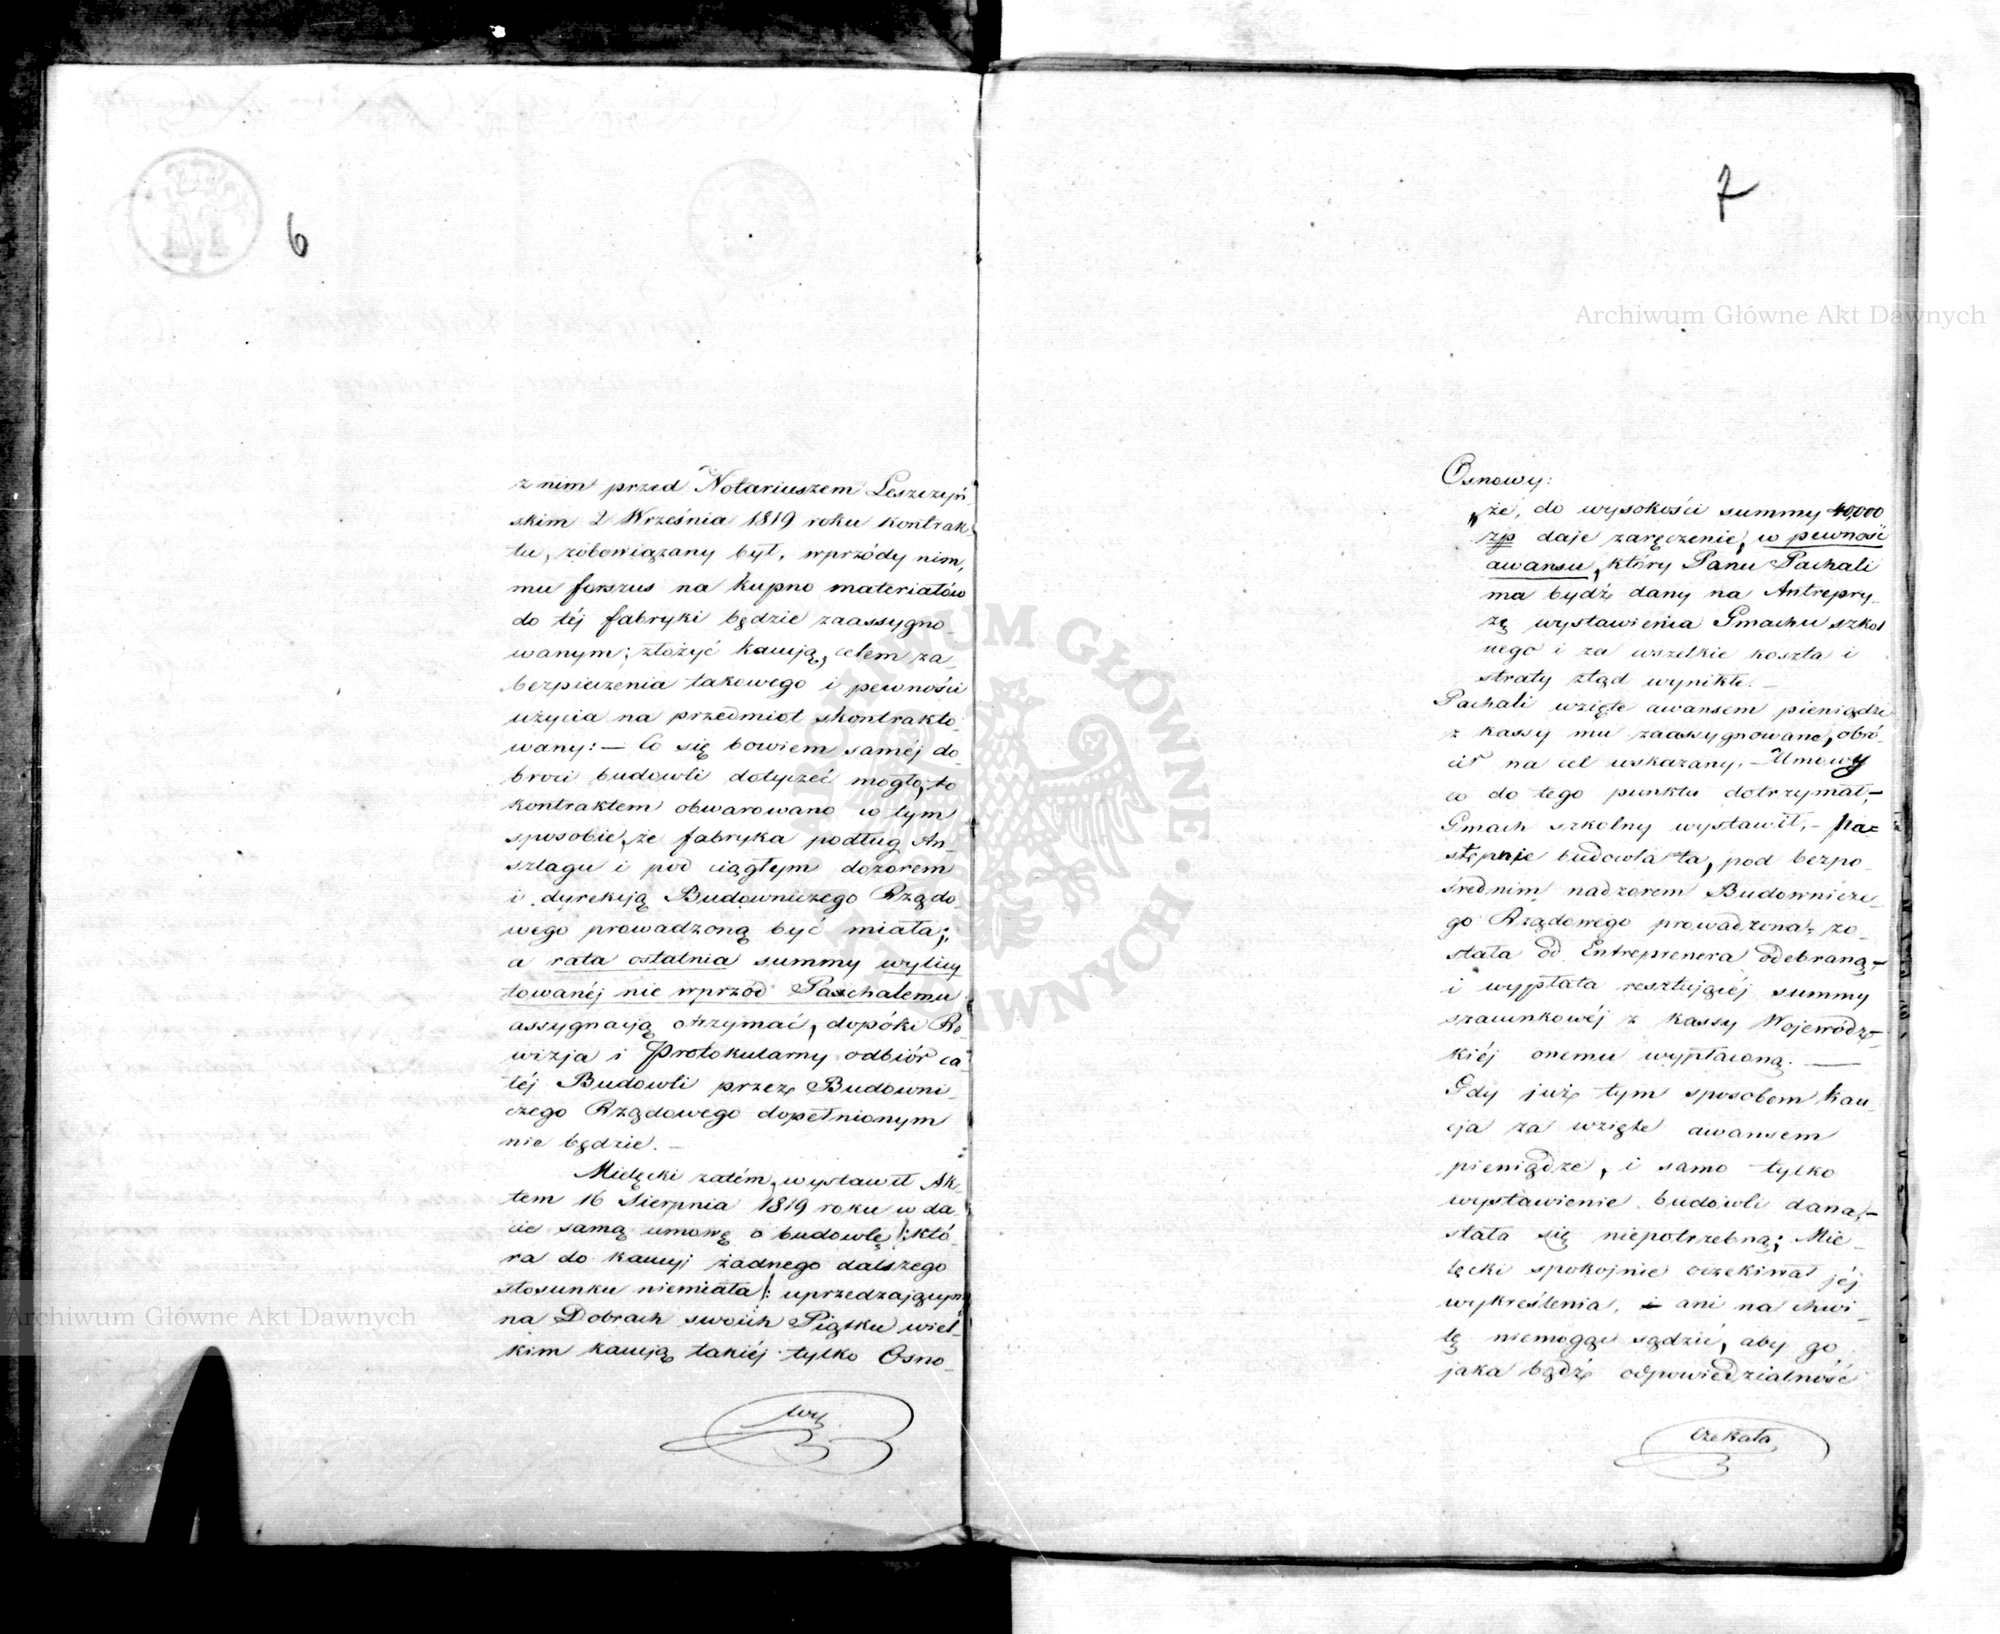 6
z nim przed Notariuszem Leszczyń
skim 2 Września 1819 roku kontrak
tu, zobowiązany był, wprzódy nim,
mu forszus na kupno materiałów
do téj fabryki będzie zaassygno
wanym; złożyć kaucją, celem za
bezpieczenia takowego i pewności
użycia na przedmiot skontrakto
wany: — Co się bowiem saméj do
broci budowli dotyczeć mogło, to
kontraktem obwarowano w tym
sposobie, że fabryka podług An
szlagu i pod ciągłym dozorem
i dyrekcją Budowniczego Rządo
wego prowadzoną być miała;
a rata ostatnia summy wylicy
towanéj nie wprzód Paschalemu
assygnacją otrzymać, dopóki Re
wizja i Protokularny odbiór ca
łéj Budowli przez Budowni
czego Rządowego dopełnionym
nie będzie. —
Mielęcki zatém, wystawił Ak
tem 16 Sierpnia 1819 roku w da
cie samą umowę o budowlę /: któ
ra do kaucyi żadnego dalszego
stosunku niemiała /: uprzedzającym
na Dobrach swoich Piątku wiel
kim kaucją takiéj tylko Osno
wy
7
Osnowy:
„że, do wysokości summy 40,000
zp daje zaręczenie, w pewność
awansu, który Panu Pachali
ma bydź dany na Antrepry
zę wystawienia Gmachu szkol
nego i za wszelkie koszta i
straty ztąd wynikłe. —
Pachali wzięte awansem pieniądze
z kassy mu zaassygnowane, obró
cił na cel wskazany, — Umowy
co do tego punktu dotrzymał, —
Gmach szkolny wystawił, — Na=
stępnie budowla ta, pod bezpo
średnim nadzorem Budownicze
go Rządowego prowadzona, zo
stała od Entreprenera odebraną, —
i wypłata resztującéj summy
szacunkowéj z Kassy Wojewódz=
kiéj onemu wypłaconą. —
Gdy już tym sposobem kau
cja za wzięte awansem
pieniądze, i samo tylko
wystawienie budowli dana, —
stała się niepotrzebną; Mie
lęcki spokojnie oczekiwał jéj
wykreślenia, i ani na chwi
lę niemogąc sądzić, aby go
jaka bądź odpowiedzialność
czekała,
Archiwum Główne Akt Dawnych
Archiwum Główne Akt Dawnych
ARCHIWUM GŁÓWNE • AKT DAWNYCH •